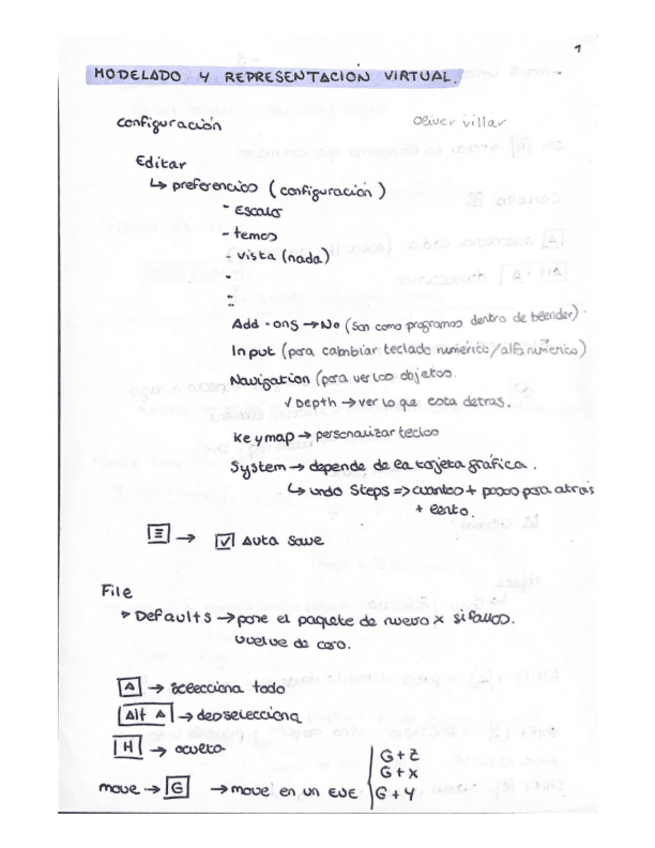 1
MODELADO Y REPRESENTACIÓN VIRTUAL.
configuración Oliver villar
Editar
↳ preferencias (configuración)
- Escalas
- temas
- vista (nada)
-
-
Add-ons → No (son como programas dentro de blender)
Input (para cabnbiar teclado numérico/alfanumérico)
Navigation (para ver los objetos.
√ Depth → ver lo que esta detras.
Keymap → personalizar teclas
System → depende de la tarjeta gráfica.
↳ undo Steps => cuantos + pasos para atrás
+ lento.
☰ → ☑ Auto save
File
▸ Defaults → pone el paquete de nuevo x si fallos.
vuelve de caro.
A → selecciona todo
Alt A → deselecciona
H → oculta
G + Z
G + X
move → G → move en un EJE G + Y